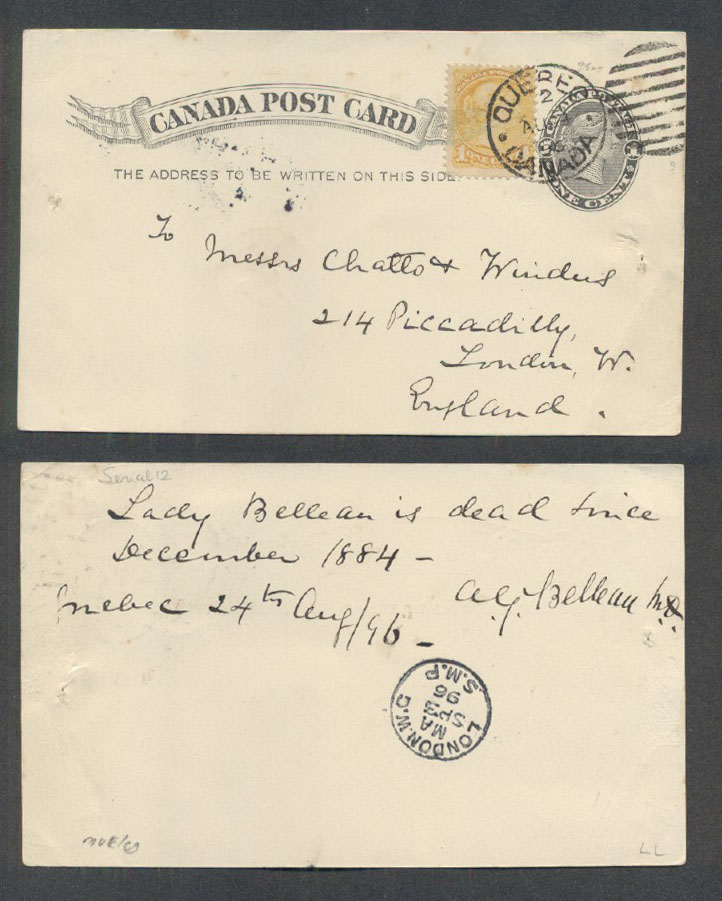 CANADA POST CARD
THE ADDRESS TO BE WRITTEN ON THIS SIDE.
QUEBEC
CANADA
ONE CENT
To
Messrs Chatto & Windus
214 Piccadilly,
London, W.
England.
Serial 12
Lady Belleau is dead since
December 1884 -
Quebec 24th Aug/96 -
A.G. Belleau M.D.
LONDON.W.C
MA
SP 3
96
S.M.P
LL